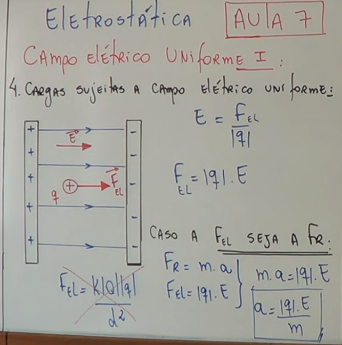 Eletrostática
AULA 7
CAMPO ELÉTRICO UNIFORME I:
4. CARGAS SUJEITAS A CAMPO ELÉTRICO UNIFORME:
E = FEL / |q|
FEL = |q|.E
+ E -
+ -
+ q + FEL -
+ -
+ -
CASO A FEL SEJA A FR:
FEL = K|Q||q| / d²
FR = m.a
FEL = |q|.E
m.a = |q|.E
a = |q|.E / m